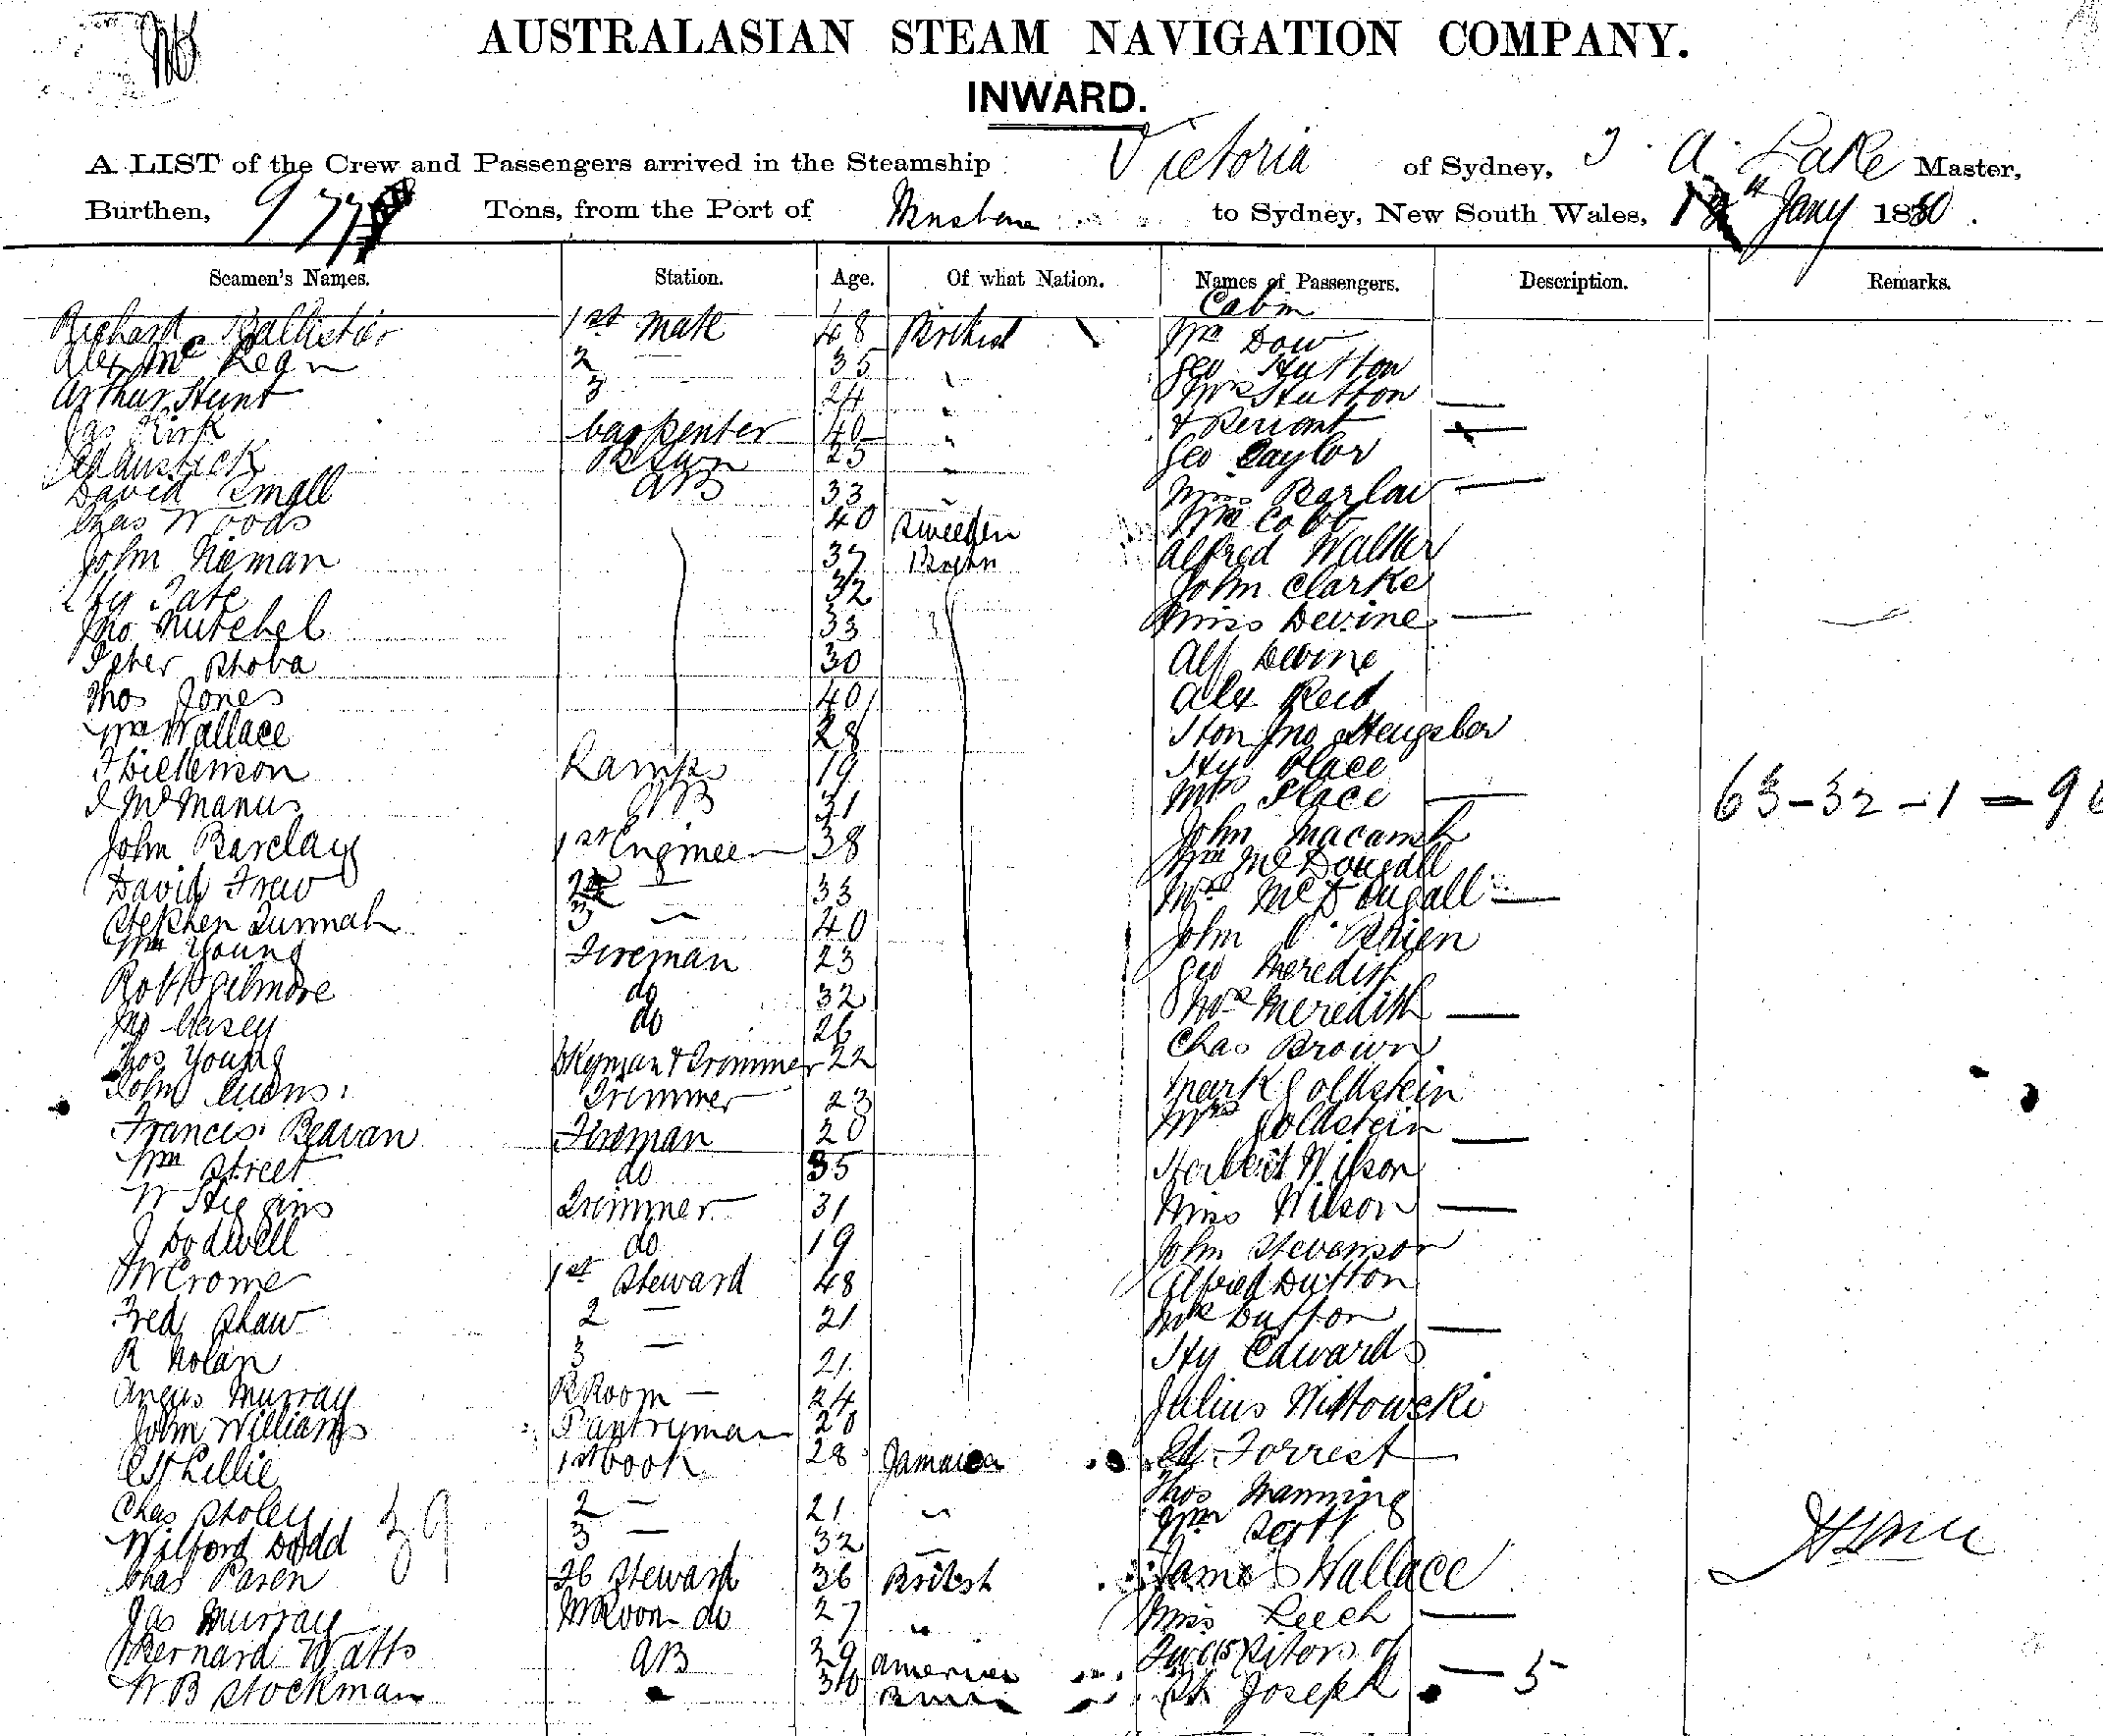 AUSTRALASIAN STEAM NAVIGATION COMPANY.
INWARD.
A LIST of the Crew and Passengers arrived in the Steamship Victoria of Sydney, J. A. Lake Master,
Burthen, 977 Tons, from the Port of Brisbane to Sydney, New South Wales, Jany 1880.
Seamen's Names. Station. Age. Of what Nation. Names of Passengers. Description. Remarks.
Cabin
Richard Ballister 1st Mate 48 British Mr Dow
Alex Mc 2 — 35 " Geo Hutton
Arthur Hunt 3 24 " Mrs Hutton —
Jas Kirk Carpenter 40 " & Servant —
25 " Geo Taylor
David Small AB 33 " Miss Barlow —
Chas Woods 40 Sweeden Cobb
John Nieman 37 Alfred Walker
Hy Tate 32 John Clarke
Jno Mutchel 33 Miss Devine —
Peter 30 Alf Devine
Thos Jones 40 Alex Reid
Wm Wallace 28 Hon Jno
Dickenson Lamps 19 Hy Place
McManus AB 31 Mrs Place — 63-32-1-9
John Barclay 1st Engineer 38 John Macansh
David Frew 2 — 33 Wm McDougall
Stephen 3 — 40 Mrs McDougall —
Wm Young Fireman 23 John O'Brien
Robt Gilmore do 32 Geo Meredith
Jno Casey do 26 Mrs Meredith —
Thos Young & Trimmer 22 Chas Brown
John Trimmer 23 Mark Goldstein
Francis Beavan Fireman 20 Mrs Goldstein —
Wm Street do 35 Herbert Wilson
W Higgins Trimmer 31 Miss Wilson —
J Dodwell do 19 John Stevenson
Crome 1st Steward 48 Alfred Dutton
Fred Shaw 2 — 21 Mrs Dutton —
R Nolan 3 — 21 Hy Edwards
Angus Murray Room — 24 Julius
John Williams Pantryman 20
Lillie 1st Cook 28 Jamaica Forrest
Chas 39 2 — 21 " Thos Manning
Wilford Dodd 3 — 32 — Wm Scott
Chas Steward 36 British James Wallace
Jas Murray Room do 27 " Miss Leech —
Bernard Watts AB 39 America Two Sisters of
W B Stockman St Joseph — 5